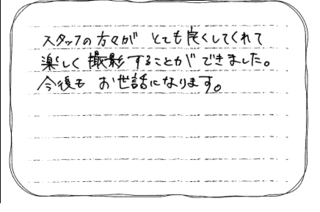 スタッフの方々が とても良くしてくれて
楽しく撮影することができました。
今後も お世話になります。